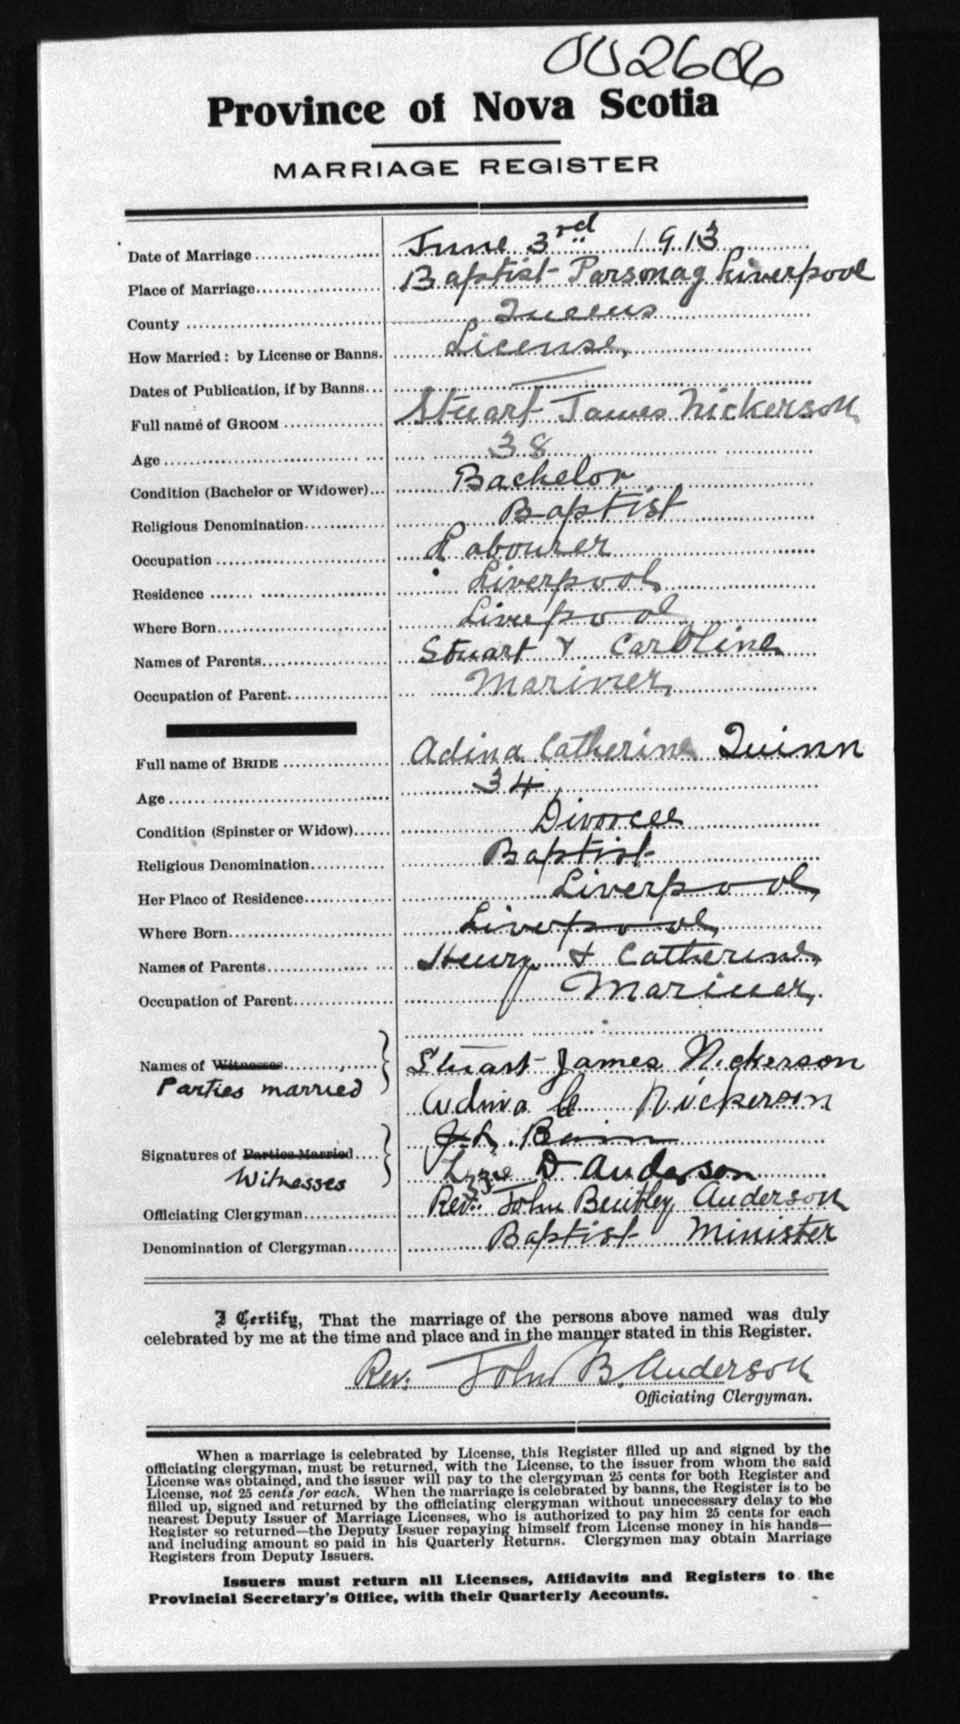 002606
Province of Nova Scotia
MARRIAGE REGISTER
Date of Marriage June 3rd 1913
Place of Marriage Baptist Parsonag Liverpool
County Queens
How Married: by License or Banns. License
Dates of Publication, if by Banns —
Full name of GROOM Stuart James Nickerson
Age 38
Condition (Bachelor or Widower) Bachelor
Religious Denomination Baptist
Occupation Labourer
Residence Liverpool
Where Born Liverpool
Names of Parents Stuart & Caroline
Occupation of Parent Mariner
Full name of BRIDE Adina Catherine Quinn
Age 34
Condition (Spinster or Widow) Divorcee
Religious Denomination Baptist
Her Place of Residence Liverpool
Where Born Liverpool
Names of Parents Henry & Catherine
Occupation of Parent Mariner
Names of Witnesses Stuart James Nickerson
Parties married Adina C Nickerson
Signatures of Parties Married Lizzie D Anderson
Witnesses
Officiating Clergyman Rev. John Bentley Anderson
Denomination of Clergyman Baptist Minister
I Certify, That the marriage of the persons above named was duly
celebrated by me at the time and place and in the manner stated in this Register.
Rev. John B. Anderson
Officiating Clergyman.
When a marriage is celebrated by License, this Register filled up and signed by the
officiating clergyman, must be returned, with the License, to the issuer from whom the said
License was obtained, and the issuer will pay to the clergyman 25 cents for both Register and
License, not 25 cents for each. When the marriage is celebrated by banns, the Register is to be
filled up, signed and returned by the officiating clergyman without unnecessary delay to the
nearest Deputy Issuer of Marriage Licenses, who is authorized to pay him 25 cents for each
Register so returned—the Deputy Issuer repaying himself from License money in his hands—
and including amount so paid in his Quarterly Returns. Clergymen may obtain Marriage
Registers from Deputy Issuers.
Issuers must return all Licenses, Affidavits and Registers to the
Provincial Secretary's Office, with their Quarterly Accounts.